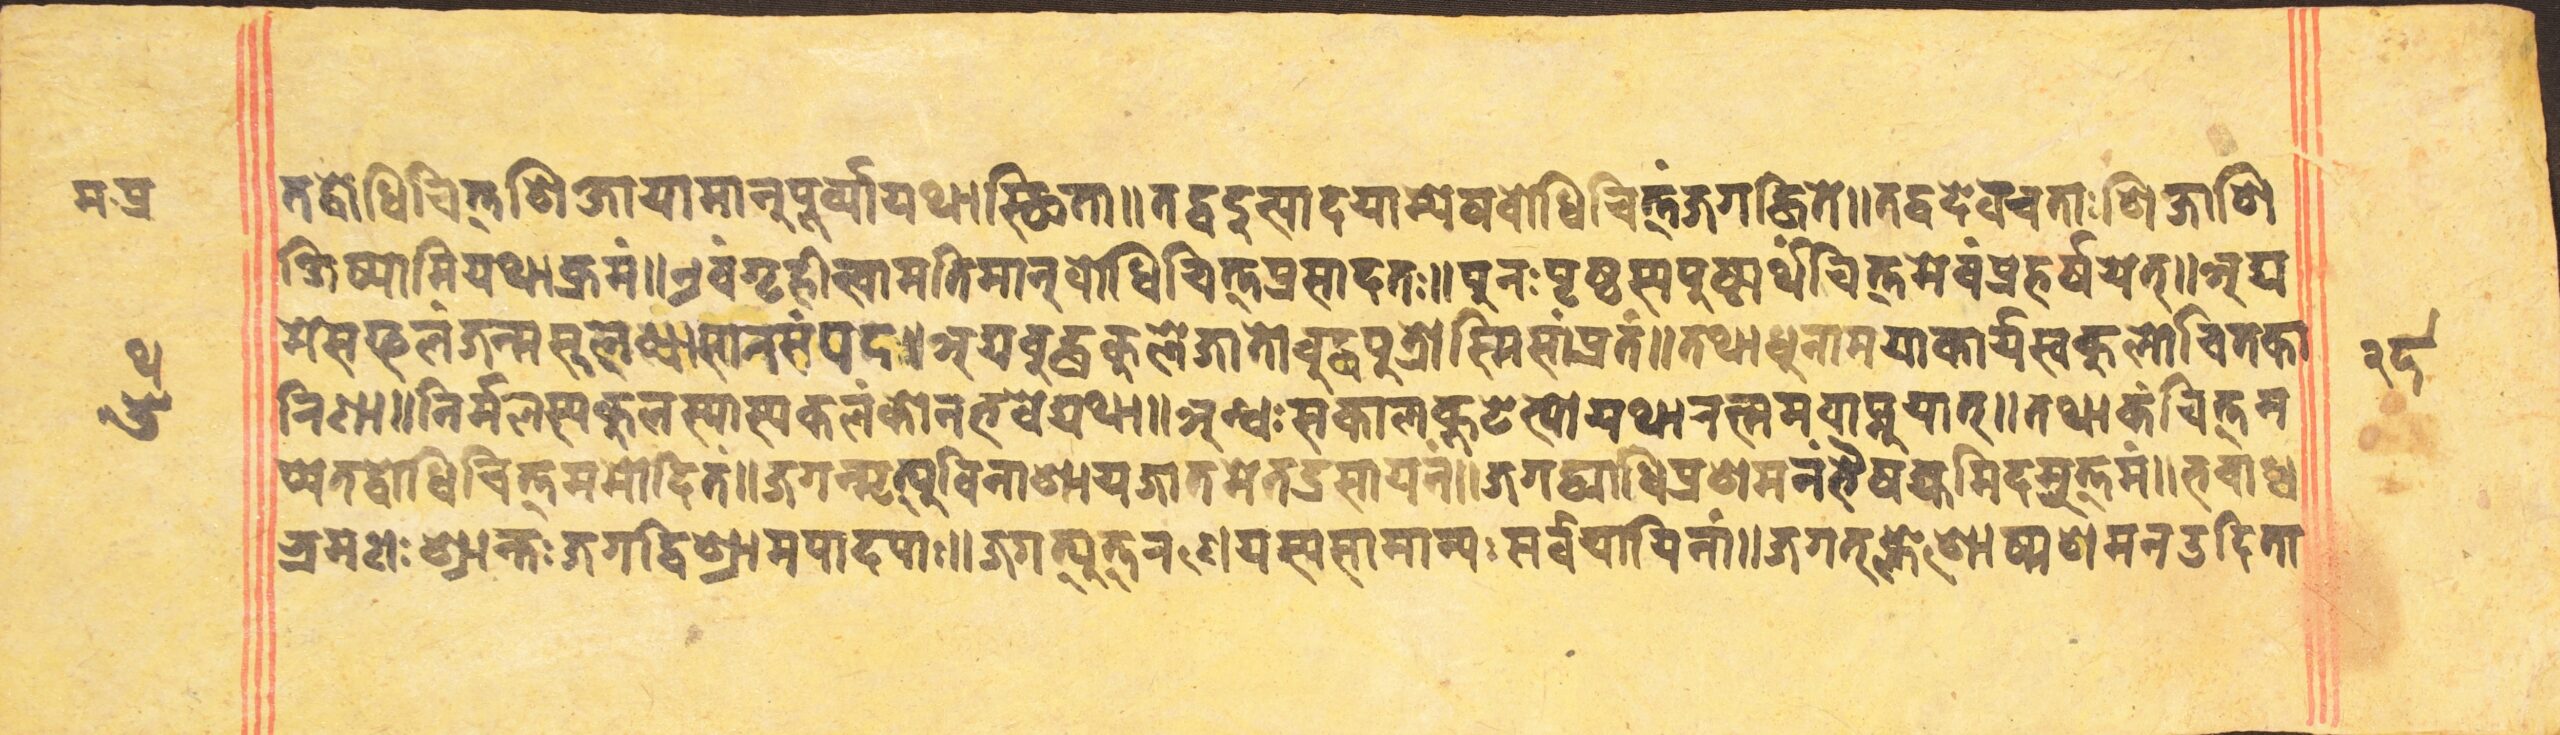 म.प्र
तद्बोधिचित्तशिक्षायामानुपूर्व्यायथास्थिता॥ तद्वदुत्पादयाम्येषबोधिचित्तंजगद्धिते॥ तद्वदेवचताःशिक्षाशि
क्षिष्यामियथाक्रमं॥ एवंगृहीत्वामतिमान्बोधिचित्तप्रसादतः॥ पुनःपृष्ठस्यपुष्ट्यर्थंचित्तमेवंप्रहर्षयेत्॥ अद्य
मेसफलंजन्मसुलब्धासानसंपदः॥ अद्यबुद्धकुलेजातोबुद्धपुत्रोस्मिसांप्रतं॥ तथाधुनामयाकार्यस्वकुलोचितका
रिणा॥ निर्मलस्यकुलस्यास्यकलंकोनभवेद्यथा॥ अन्धःसकालकुटेत्योयथारत्नमवाप्नुयात्॥ तथाकंचित्तम
प्येतद्बोधिचित्तममोदितं॥ जगन्मृत्युविनाशायजातमेतद्रसायनं॥ जगद्व्याधिप्रशमनंभैषज्यमिदमुत्तमं॥ भवाध्व
भ्रमणःश्रान्तःजगद्विश्रामपादपाः॥ जगत्युत्तरणेयस्यसामान्यःसर्वयायिनां॥ जगत्क्लेशोष्मशमनउदिता